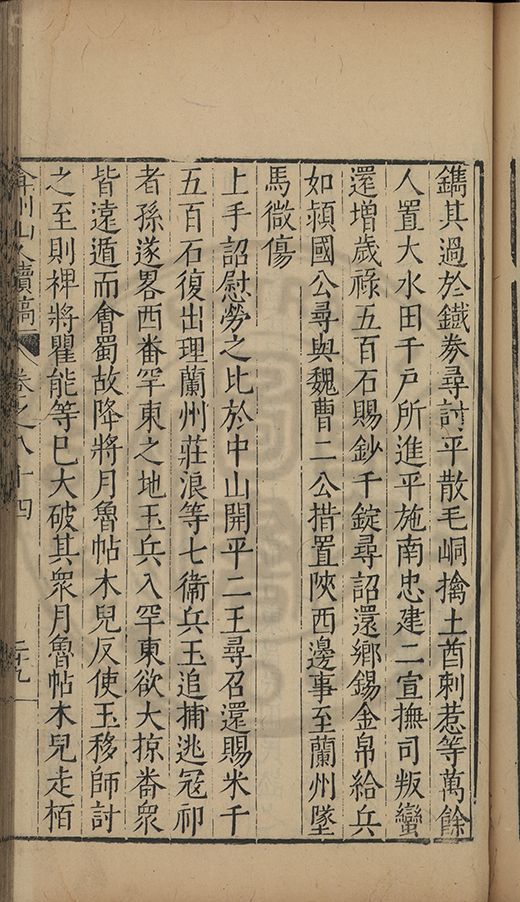 鐫其過於鐵券尋討平散毛峒擒土酋刺惹等萬餘
人置大水田千戶所進平施南忠建二宣撫司叛蠻
還增歲祿五百石賜鈔千錠尋詔還鄉錫金帛給兵
如潁國公尋與魏曹二公措置陝西邊事至蘭州墜
馬微傷
上手詔慰勞之比於中山開平二王尋召還賜米千
五百石復出理蘭州莊浪等七衞兵玉追捕逃寇祁
者孫遂畧西番罕東之地玉兵入罕東欲大掠畨衆
皆遠遁而會蜀故降將月魯帖木兒反使玉移師討
之至則裨將瞿能等巳大破其衆月魯帖木兒走栢
弇州山人續稿 卷之八十四 二十九